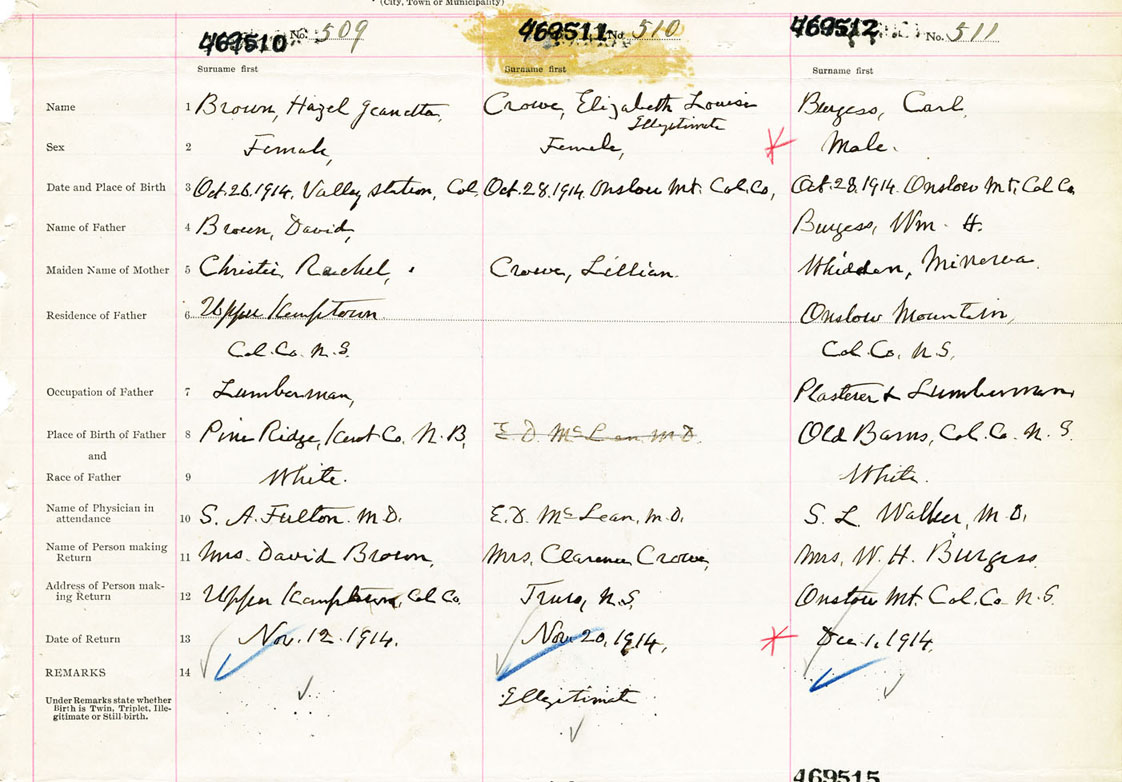 (City, Town or Municipality)
469510 No. 509 469511 No. 510 469512 No. 511
Surname first Surname first Surname first
Name 1 Brown, Hazel Jeanetta, Crowe, Elizabeth Louise Burgess, Carl,
Illegitimate
Sex 2 Female, Female, Male.
Date and Place of Birth 3 Oct. 26. 1914. Valley station, Col. Oct. 28. 1914. Onslow Mt. Col. Co, Oct. 28. 1914. Onslow Mt, Col Co,
Name of Father 4 Brown, David, Burgess, Wm. H.
Maiden Name of Mother 5 Christie, Rachel, Crowe, Lillian. Whidden, Minerva.
Residence of Father 6 Upper Kemptown Onslow Mountain,
Col. Co. N.S. Col. Co, N.S,
Occupation of Father 7 Lumberman, Plasterer & Lumberman,
Place of Birth of Father 8 Pine Ridge, Kent Co. N.B, E. D. McLean M.D. Old Barns, Col. Co. N.S.
and
Race of Father 9 White. White.
Name of Physician in attendance 10 S. A. Fulton. M.D. E.D. McLean, M.D, S. L. Walker, M.D,
Name of Person making Return 11 Mrs. David Brown, Mrs. Clarence Crowe, Mrs. W. H. Burgess.
Address of Person making Return 12 Upper Kemptown, Col Co. Truro, N.S. Onslow Mt. Col. Co. N.S.
Date of Return 13 Nov. 12. 1914. Nov 20, 1914, Dec 1, 1914.
REMARKS 14
Under Remarks state whether Birth is Twin, Triplet, Illegitimate or Still-birth. Illegitimate
469515